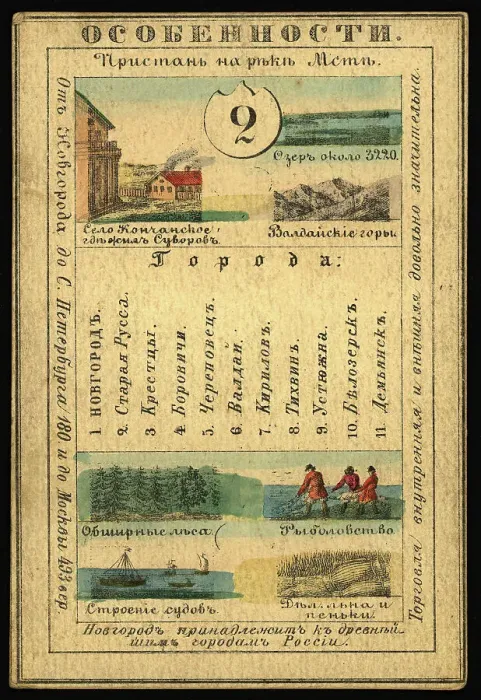 ОСОБЕННОСТИ.
Пристань на рѣкѣ Мстѣ.
2
Озеръ около 3220.
Село Кончанское
гдѣ жилъ Суворовъ.
Валдайскіе горы
Города:
1 НОВГОРОДЪ.
2. Старая Русса.
3 Крестцы.
4. Боровичи.
5. Череповецъ.
6. Валдай.
7. Кириловъ.
8. Тихвинъ.
9. Устюжна.
10. Бѣлозерскъ.
11 Демьянскъ.
Обширные лѣса
Рыболовство
Строеніе судовъ.
Дѣл. льна и
пеньки.
Новгородъ принадлежитъ къ древнѣй-
шимъ городамъ Россіи.
Отъ Новгорода до С. Петербурга 180 и до Москвы 493 вер
Торговля внутренняя и внѣшняя довольно значительна.